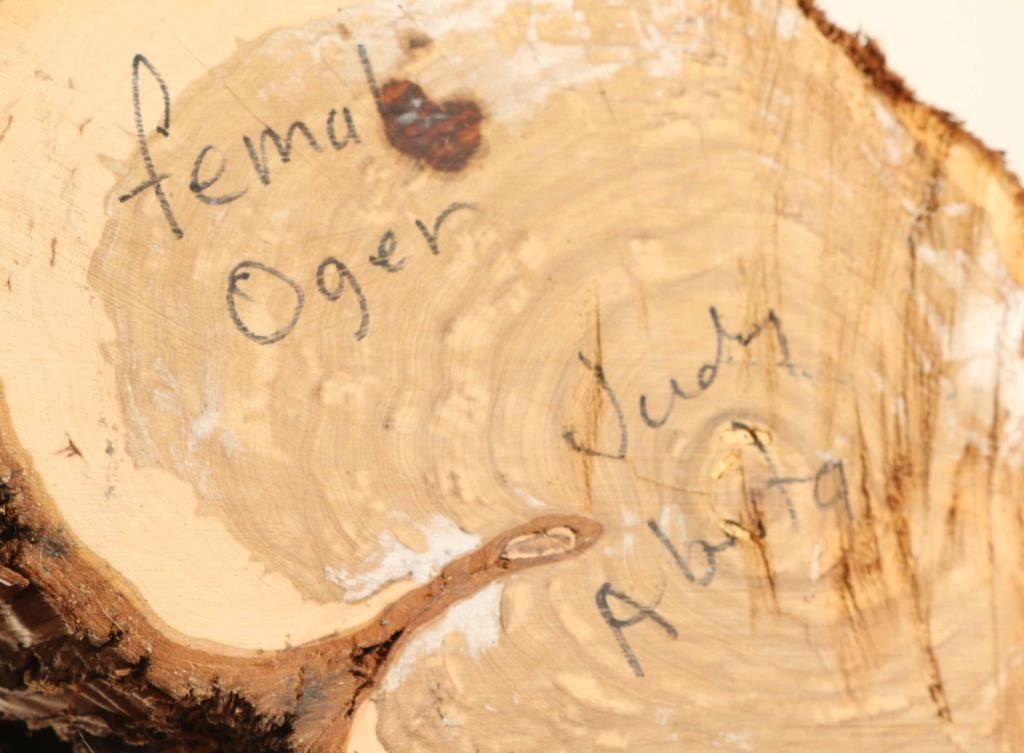 femal
Oger
Judy
Abuta